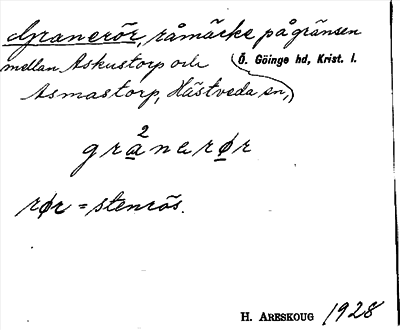 Granerör, råmärke på gränsen
mellan Askustorp och Ö. Göinge hd, Krist. l.
Asmastorp, Hästveda sn,
2
granɛrør
rør = stenrös.
H. ARESKOUG 1928